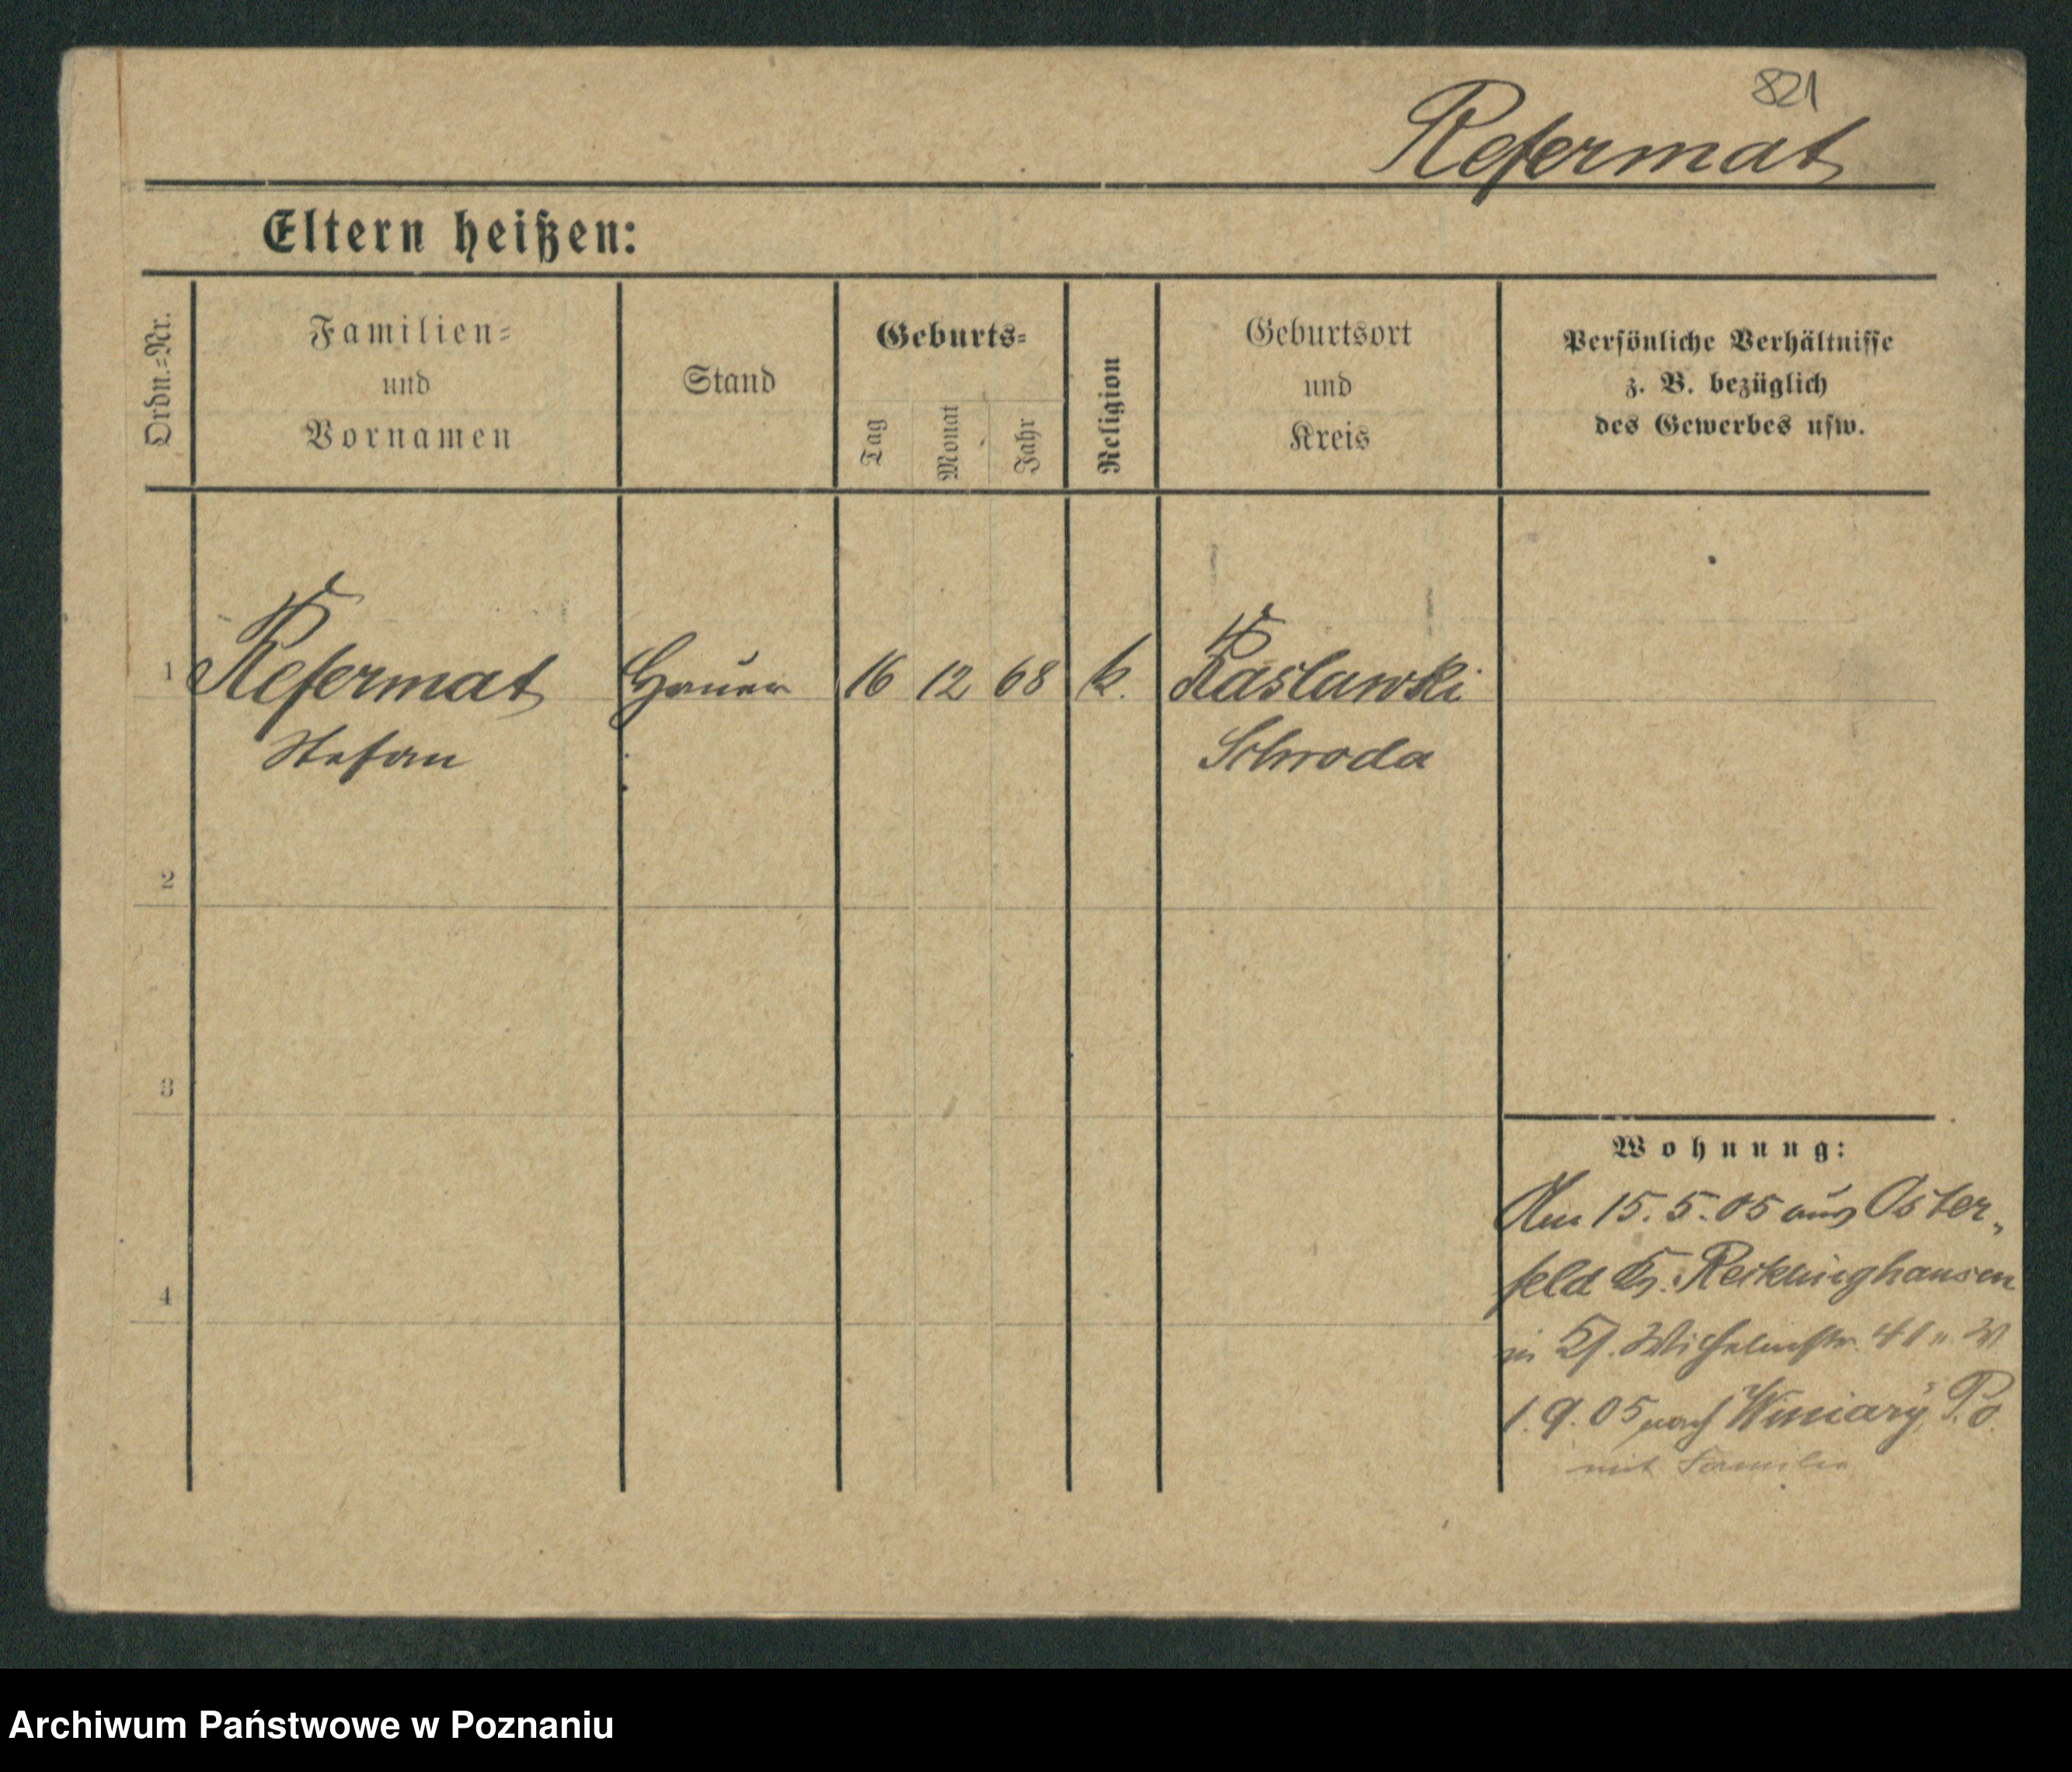 821
Refermat
Eltern heißen:
Ordn.=Nr.
Familien=
und
Vornamen
Stand
Geburts=
Tag
Monat
Jahr
Religion
Geburtsort
und
Kreis
Persönliche Verhältnisse
z. B. bezüglich
des Gewerbes usw.
1 Refermat Hauer 16 12 68 k. Raslawski
Stefan Schroda
2
3
4
Wohnung:
Am 15.5.05 aus Oster-
feld Kr. Recklinghausen
in Wilhelmstr. 41
1.9.05 nach Winiary, Po.
mit Familie
Archiwum Państwowe w Poznaniu